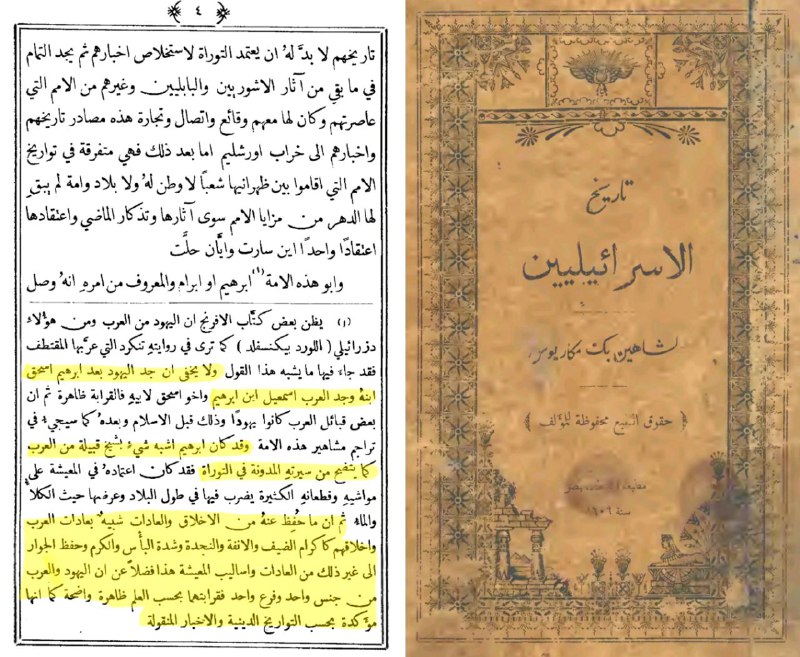 ٤
تاريخهم لا بدَّ لهُ ان يعتمد التوراة لاستخلاص اخبارهم ثم يجد التمام
في ما بقي من آثار الاشوريين والبابليين وغيرهم من الامم التي
عاصرتهم وكان لها معهم وقائع واتصال وتجارة هذه مصادر تاريخهم
واخبارهم الى خراب اورشليم اما بعد ذلك فهي متفرقة في تواريخ
الامم التي اقاموا بين ظهرانيها شعباً لا وطن لهُ ولا بلاد وامة لم يبقِ
لها الدهر من مزايا الامم سوى آثارها وتذكار الماضي واعتقادها
اعتقادًا واحدًا اين سارت وايَّان حلَّت
وابو هذه الامة (١) ابرهيم او ابرام والمعروف من امرهِ انهُ وصل
(١) يظن بعض كتَّاب الافرنج ان اليهود من العرب ومن هؤلاء
دزرائيلي (اللورد بيكنسفلد) كما ترى في روايتهِ تنكرد التي عرَّبها المقتطف
فقد جاءَ فيها ما يشبه هذا القول ولا يخفى ان جد اليهود بعد ابرهيم اسحق
ابنهُ وجد العرب اسمعيل ابن ابرهيم واخو اسحق لابيهِ فالقرابة ظاهرة ثم ان
بعض قبائل العرب كانوا يهودًا وذلك قبل الاسلام وبعدهُ كما سيجيءُ في
تراجم مشاهير هذه الامة وقد كان ابرهيم اشبه شيءٍ بشيخ قبيلة من العرب
كما يتضح من سيرتهِ المدونة في التوراة فقد كان اعتمادهُ في المعيشة على
مواشيهِ وقطعانهِ الكثيرة يضرب فيها في طول البلاد وعرضها حيث الكلأ
والماءُ ثم ان ما حُفظ عنهُ من الاخلاق والعادات شبيهٌ بعادات العرب
واخلاقهم كاكرام الضيف والانفة والنجدة وشدة البأس والكرم وحفظ الجوار
الى غير ذلك من العادات واساليب المعيشة هذا فضلاً عن ان اليهود والعرب
من جنس واحد وفرع واحد فقرابتهما بحسب العلم ظاهرة واضحة كما انها
مؤكدة بحسب التواريخ الدينية والاخبار المنقولة
تاريخ
الاسرائيليين
لشاهين بك مكاريوس
(حقوق الطبع محفوظة للمؤلف)
سنة ١٩٠٤